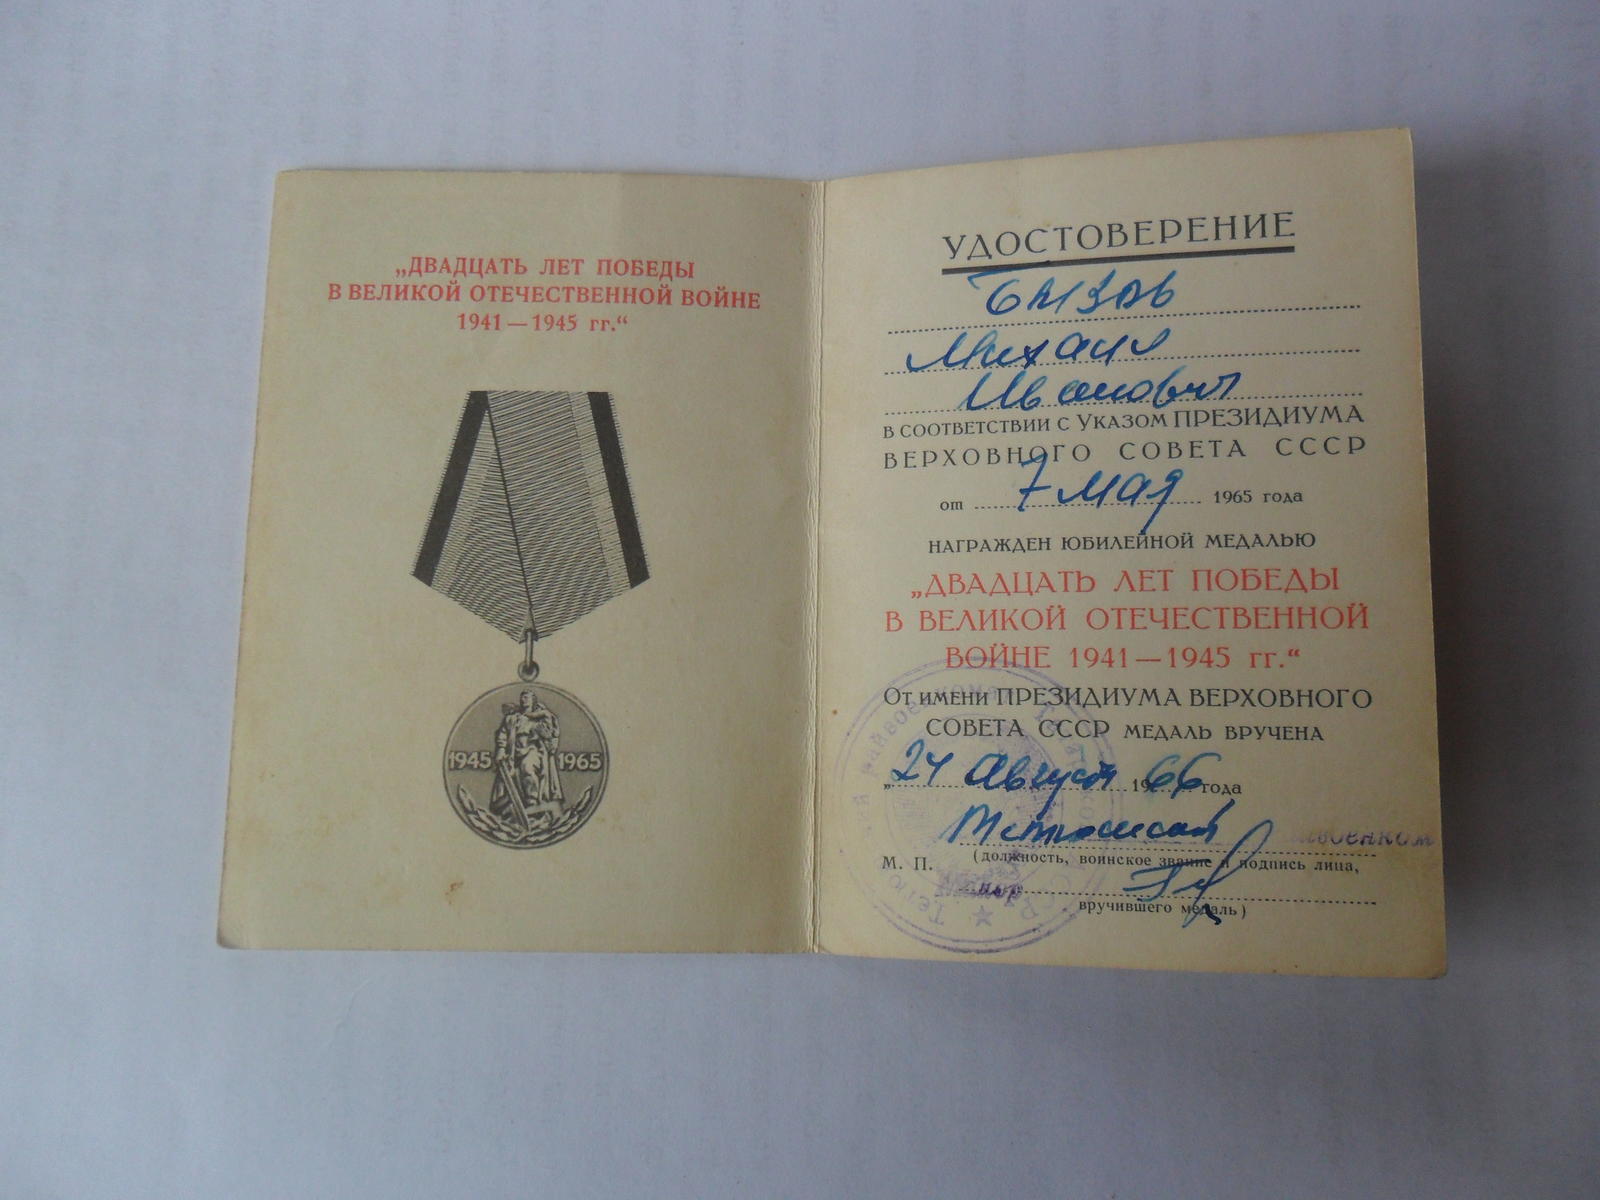 „ДВАДЦАТЬ ЛЕТ ПОБЕДЫ
В ВЕЛИКОЙ ОТЕЧЕСТВЕННОЙ ВОЙНЕ
1941 — 1945 гг.“
1945 1965
УДОСТОВЕРЕНИЕ
Михаил
Иванович
В СООТВЕТСТВИИ С УКАЗОМ ПРЕЗИДИУМА
ВЕРХОВНОГО СОВЕТА СССР
от 7 мая 1965 года
НАГРАЖДЕН ЮБИЛЕЙНОЙ МЕДАЛЬЮ
„ДВАДЦАТЬ ЛЕТ ПОБЕДЫ
В ВЕЛИКОЙ ОТЕЧЕСТВЕННОЙ
ВОЙНЕ 1941 — 1945 гг.“
ОТ ИМЕНИ ПРЕЗИДИУМА ВЕРХОВНОГО
СОВЕТА СССР МЕДАЛЬ ВРУЧЕНА
„24 Август 1966 года
М. П. (должность, воинское звание и подпись лица,
вручившего медаль)